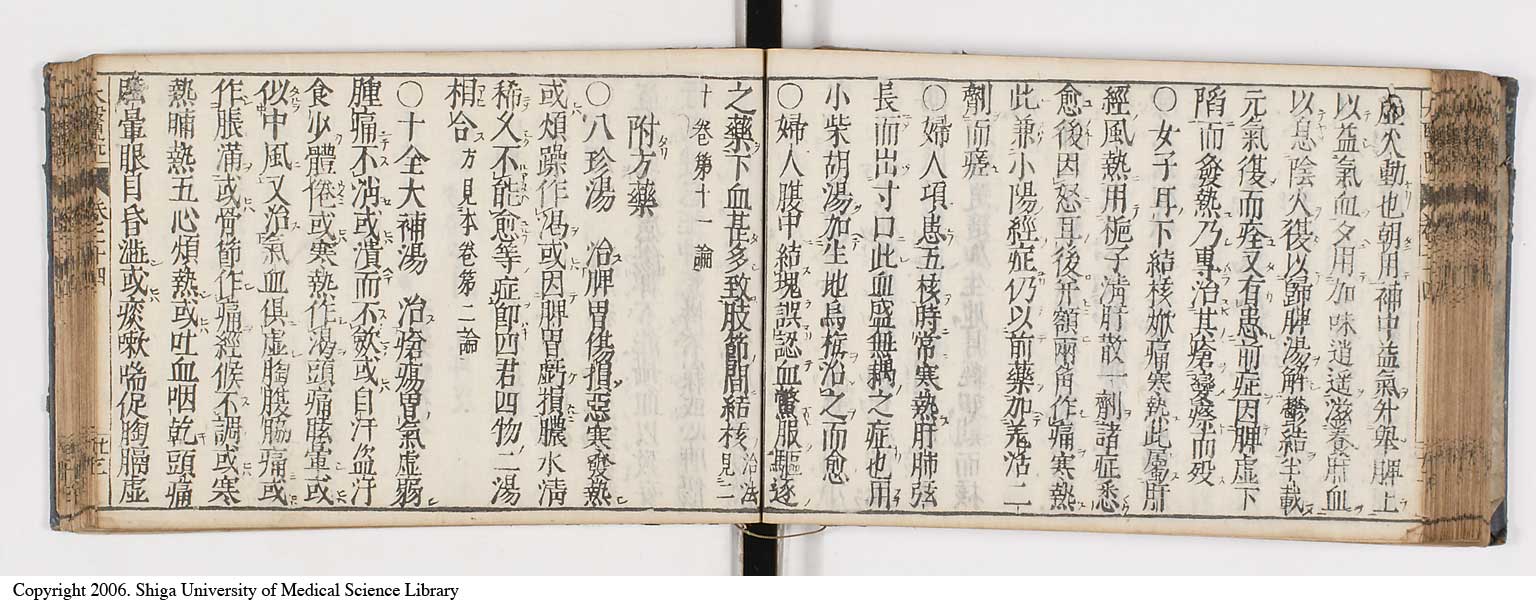 虛火動也朝用補中益氣汁舉脾上
以益氣血夕用加味逍遙滋養肝血
以息陰火復以歸脾湯解鬱結半載
元氣復而痊又有患前症因脾虛下
陷而發熱乃專治其瘡變瘵而歿
〇女子耳下結核焮痛寒熱此屬肝
經風熱用梔子淸肝散一劑諸症悉
愈後因怒耳後并額兩角作痛寒熱
此兼小陽經症仍以前藥加羌活二
劑而痊
〇婦人項患五核時常寒熱肝肺弦
長而出寸口此血盛無耦之症也用
小柴胡湯加生地烏梅治之而愈
〇婦人腹中結塊誤認血鱉服驅逐
之藥下血甚多致肢節間結核治法見二
十卷第十一論
附方藥
〇八珍湯 治脾胃傷損惡寒發熱
或煩躁作渴或因脾胃虧損膿水淸
稀久不能愈等症卽四君四物二湯
相合方見本卷第二論
〇十全大補湯 治瘡瘍胃氣虛弱
腫痛不消或潰而不斂或自汗盜汗
食少體倦或寒熱作渴頭痛眩暈或
似中風又治氣血俱虛胸腹脇痛或
作脹滿或骨節作痛經候不調或寒
熱晡熱五心煩熱或吐血咽乾頭痛
眩暈眼目昏澁或痰嗽喘促胸膈虛
Copyright 2006. Shiga University of Medical Science Library